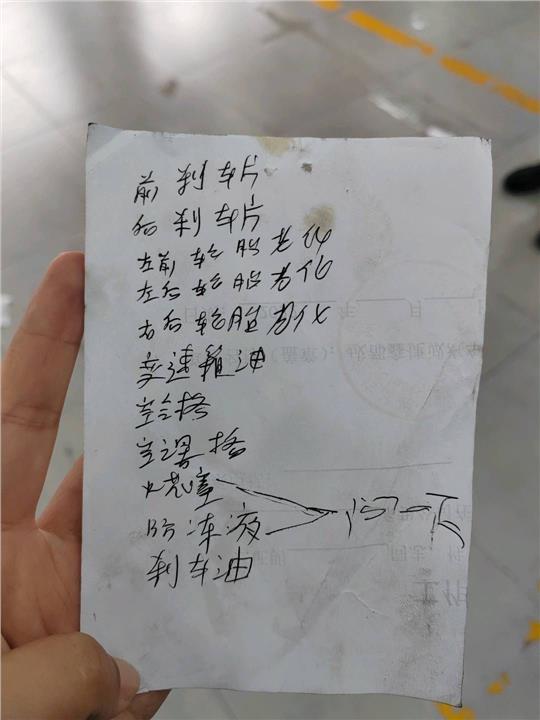 前刹车片
后刹车片
左前轮胎老化
左后轮胎老化
右后轮胎老化
变速箱油
空格
空调格
火花塞
防冻液
刹车油